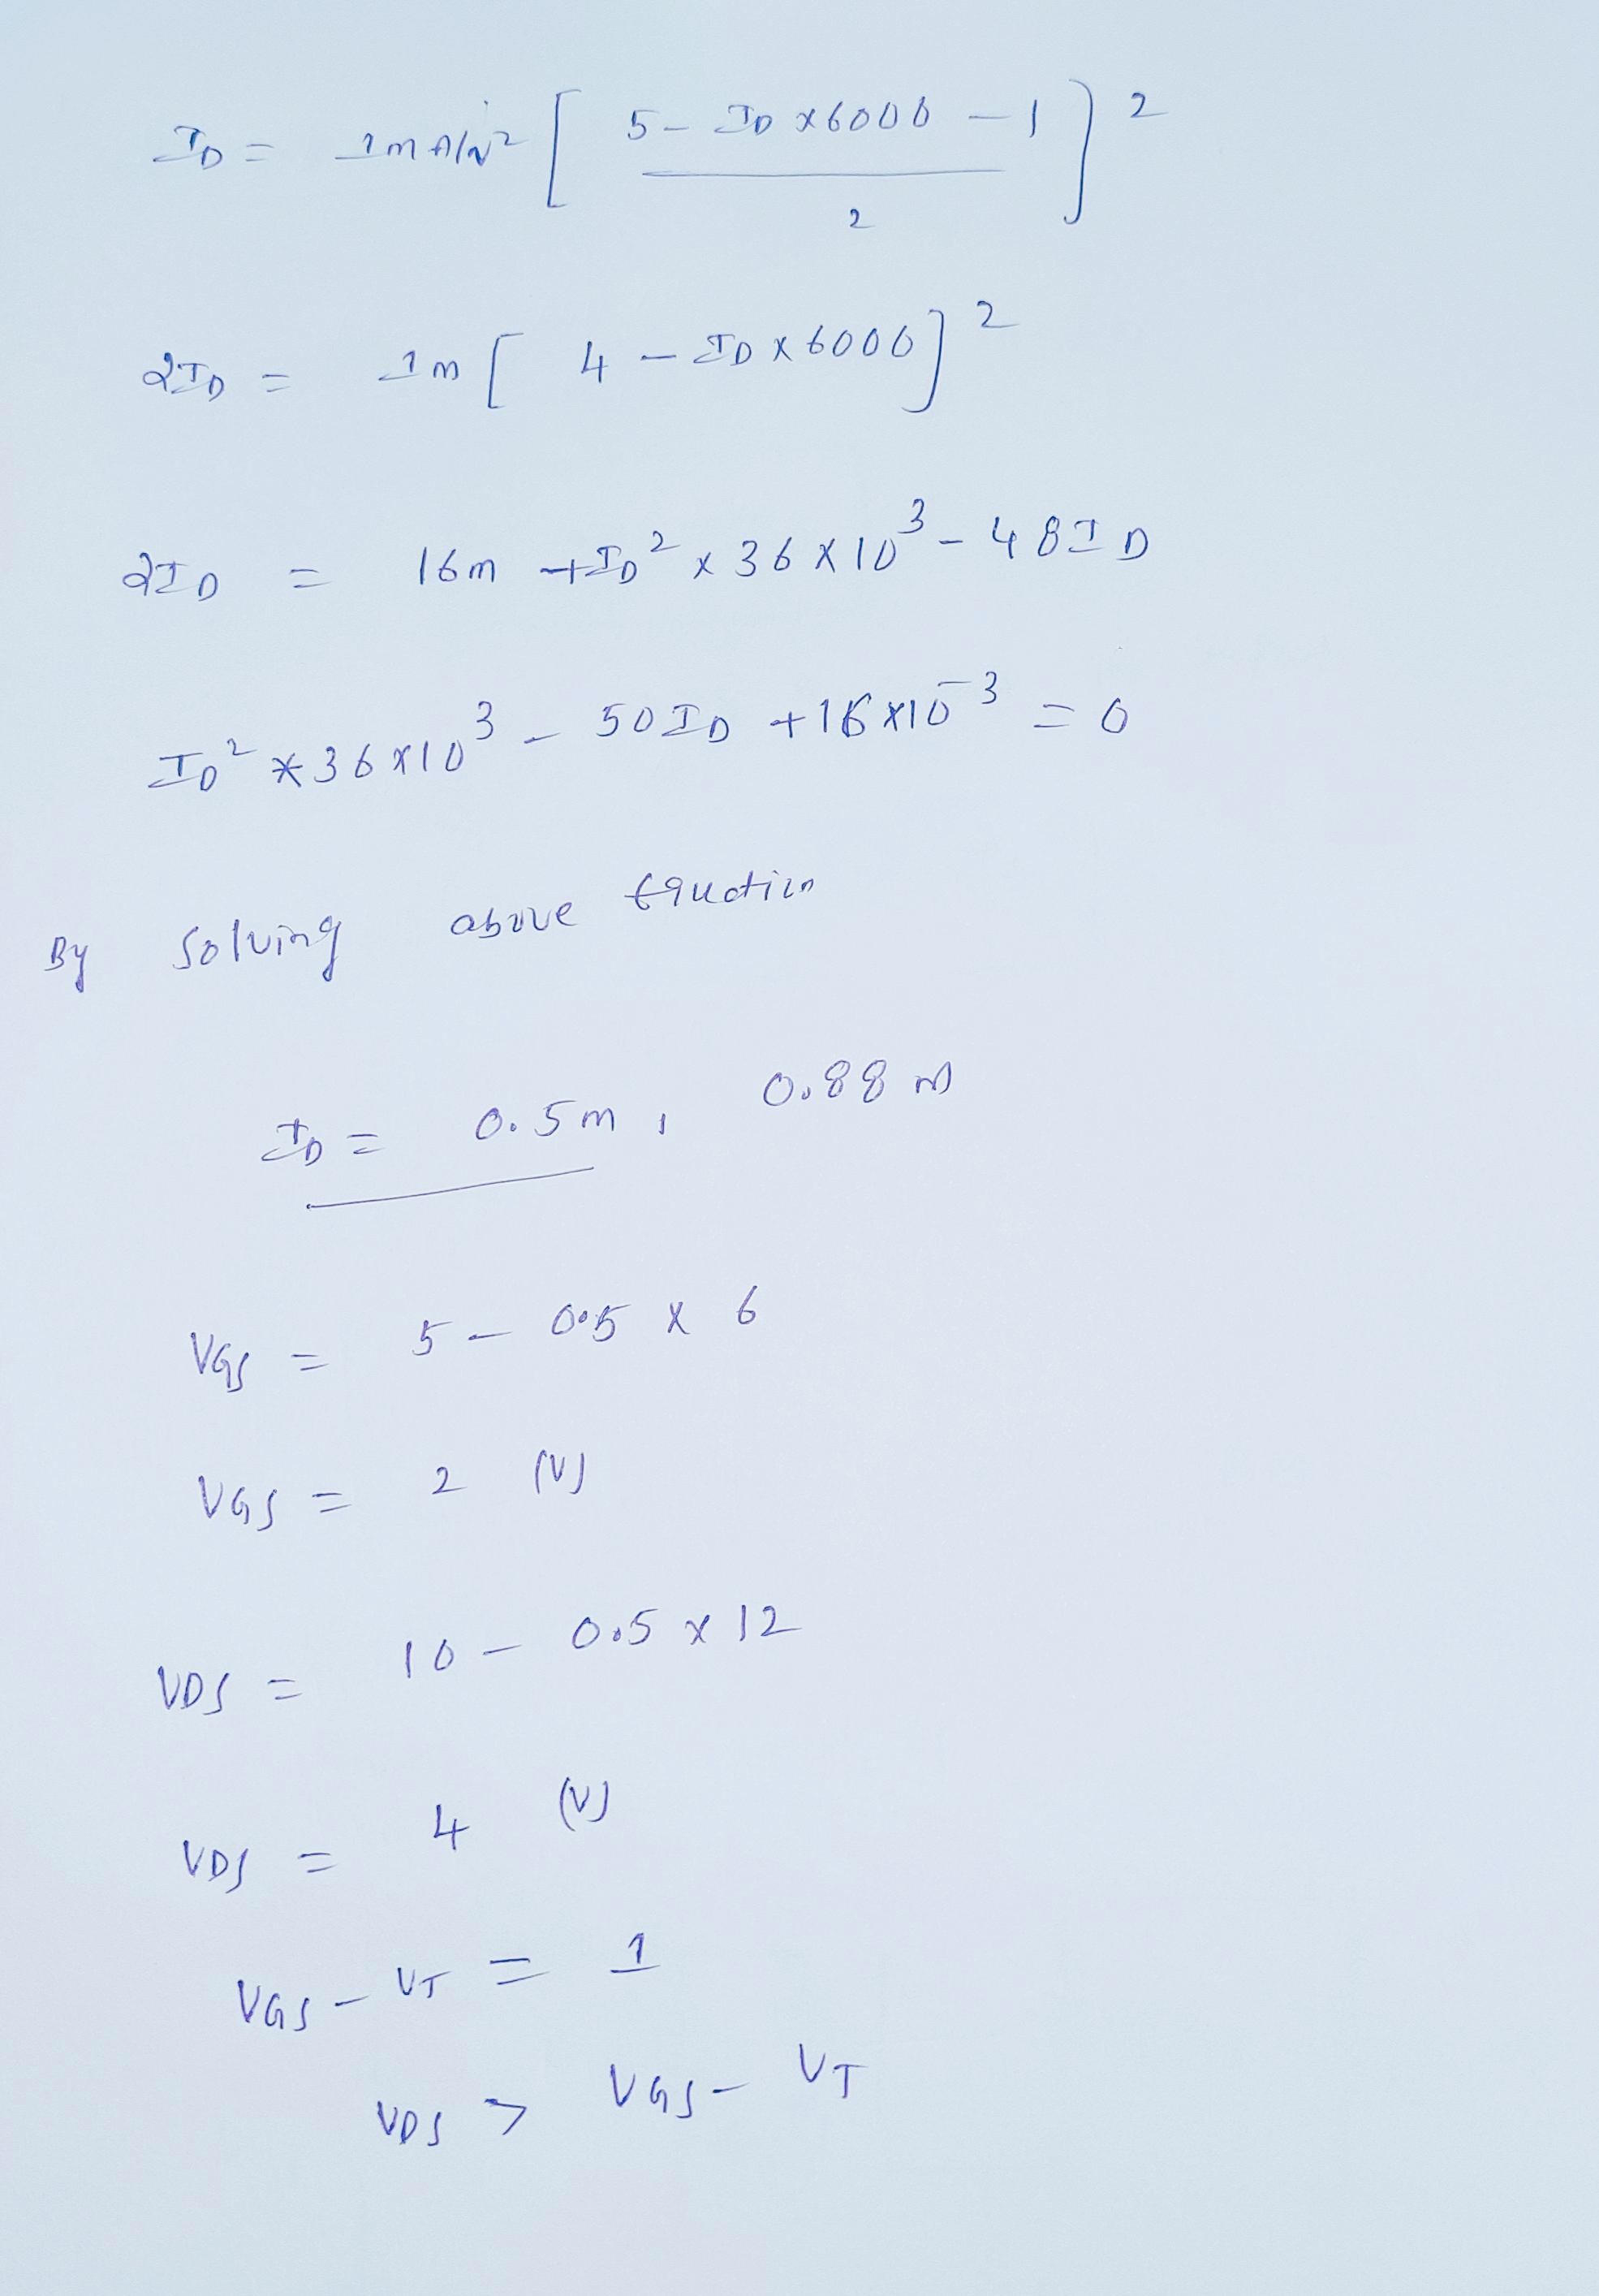 ID = 1mA/V² [ (5 - ID x 6000 - 1) / 2 ]²
2ID = 1m [ 4 - ID x 6000 ]²
2ID = 16m + ID² x 36 x 10³ - 48ID
ID² * 36 x 10³ - 50ID + 16 x 10⁻³ = 0
By solving above Equation
ID = 0.5m , 0.88m
VGS = 5 - 0.5 x 6
VGS = 2 (V)
VDS = 10 - 0.5 x 12
VDS = 4 (V)
VGS - VT = 1
VDS > VGS - VT